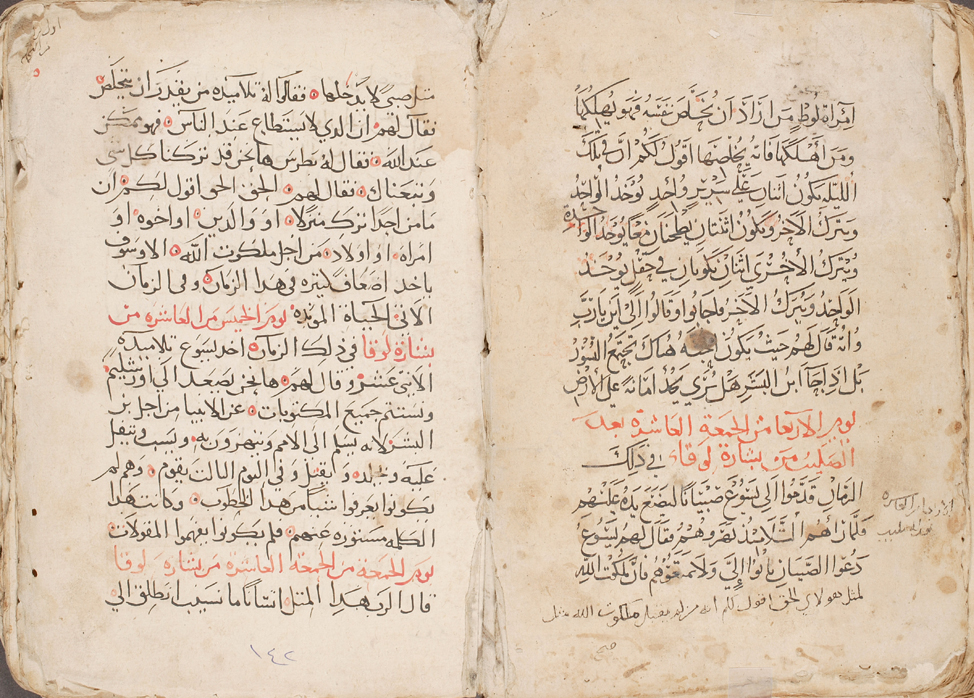 امراة لوط من اراد ان يخلص نفسه فهو يهلكها
ومن اهلكها فانه يخلصها اقول لكم ان في تلك
الليله يكون اثنان علي سرير واحد يوخد الواحد
ويترك الاخر ويكون اثنتان يطحنان معا يوخد الواحدة
ويترك الاخري اثنان يكونان في حقل يوخد
الواحد ويترك الاخر فاجابوا وقالوا الي اين يارب
وانه قال لهم حيث يكون الجثه هناك تجتمع النسور
بل اذا جا ابن البشر هل تري يجد امانة علي الارض
يوم الاربعا من الجمعة العاشرة بعد
الصليب من بشارة لوقا في ذلك
الزمان قدموا الي يسوع صبيانا ليضع يده عليهم
فلما راهم التلاميذ نهروهم وقال لهم يسوع
دعوا الصبيان ياتوا الي ولا تمنعوهم فان ملكوت الله
لمثل هولاي الحق اقول لكم انه من لم يقبل ملكوت الله مثل
مثل صبي لا يدخلها فقالوا له تلاميده من يقدر ان يتخلص
فقال لهم ان الدي لا يستطاع عند الناس فهو ممكن
عند الله فقال له بطرس ها نحن قد تركنا كل شي
وتبعناك فقال لهم الحق الحق اقول لكم ان
ما من احد ترك منزلا او والدين او اخوه او
امراه او اولاد من اجل ملكوت الله الا وسوف
ياخد اضعاف كتيره في هدا الزمان وفي الزمان
الاتي الحياه الموبده يوم الخميس من العاشره من
بشارة لوقا في ذلك الزمان اخد يسوع تلاميده
الاتني عشر وقال لهم ها نحن نصعد الي اورشليم
وتستتم جميع المكتوبات عن الانبيا من اجل بن
البشر لانه يسلم الي الامم ويتهزون به ويسب ويتفل
عليه ويجلد ويقتل وفي اليوم التالت يقوم وهم لم
يكونوا يعرفوا شيا من هدا الخطوب وكانت هدا
الكلمه مستوره عنهم فلم يكونوا يفهموا المقولات
يوم الجمعه من الجمعة العاشرة من بشاره لوقا
قال الرب هدا المتل انسانا ما نسيب انطلق الي
١٤٢